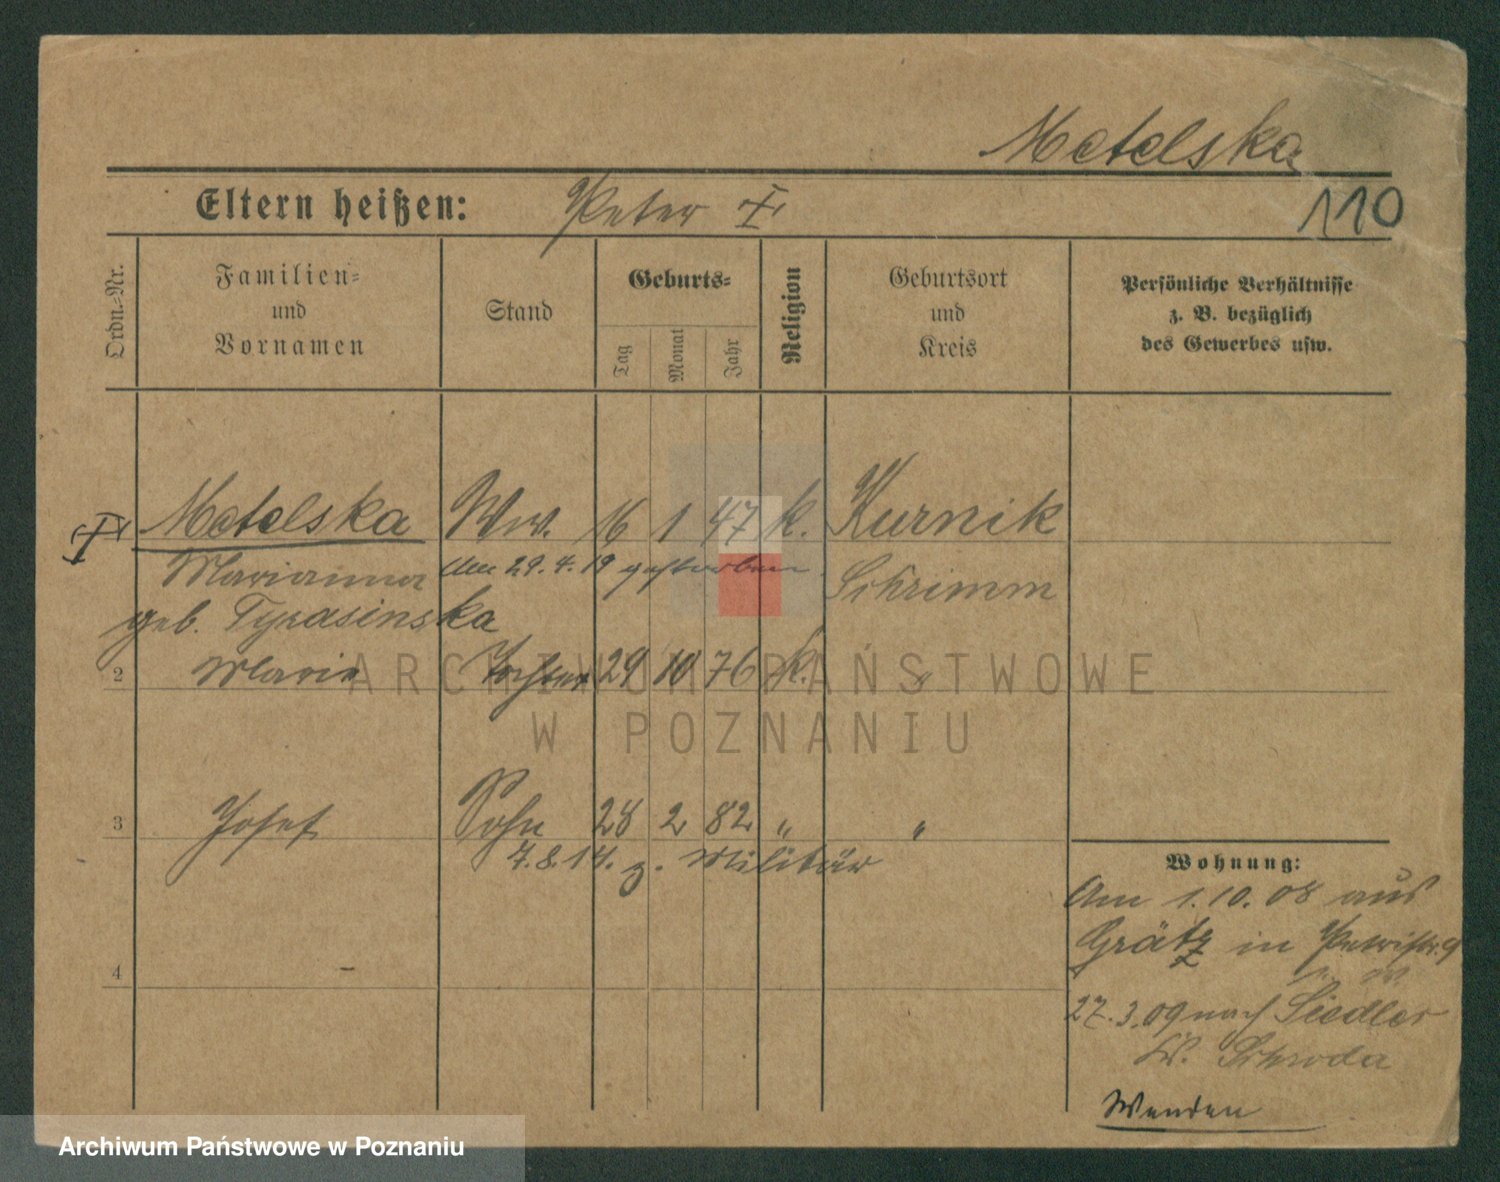 Metelska
110
Eltern heißen: Peter †
Ordn.-Nr.
Familien-
und
Vornamen
Stand
Geburts-
Tag
Monat
Jahr
Religion
Geburtsort
und
Kreis
Persönliche Verhältnisse
z. B. bezüglich
des Gewerbes usw.
† Metelska Ww. 16 1 47 k. Kurnik
Marianna am 29.4.19 gestorben Schrimm
geb. Tyrasinska
2 Marie Tochter 29 10 76 k. "
3 Josef Sohn 28 2 82 " "
7.8.14. z. Militär
4 –
Wohnung:
Am 1.10.08 aus
Grätz in Petristr. 9
27.3.09 nach Siedler
Kr. Schroda
Wenden
ARCHIWUM PAŃSTWOWE
W POZNANIU
Archiwum Państwowe w Poznaniu